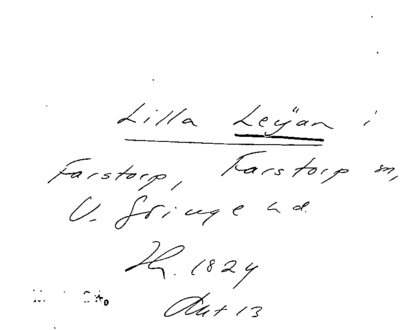 Lilla Leÿan i
Farstorp, Farstorp sn,
V. Göinge hd.
1824
Akt 13